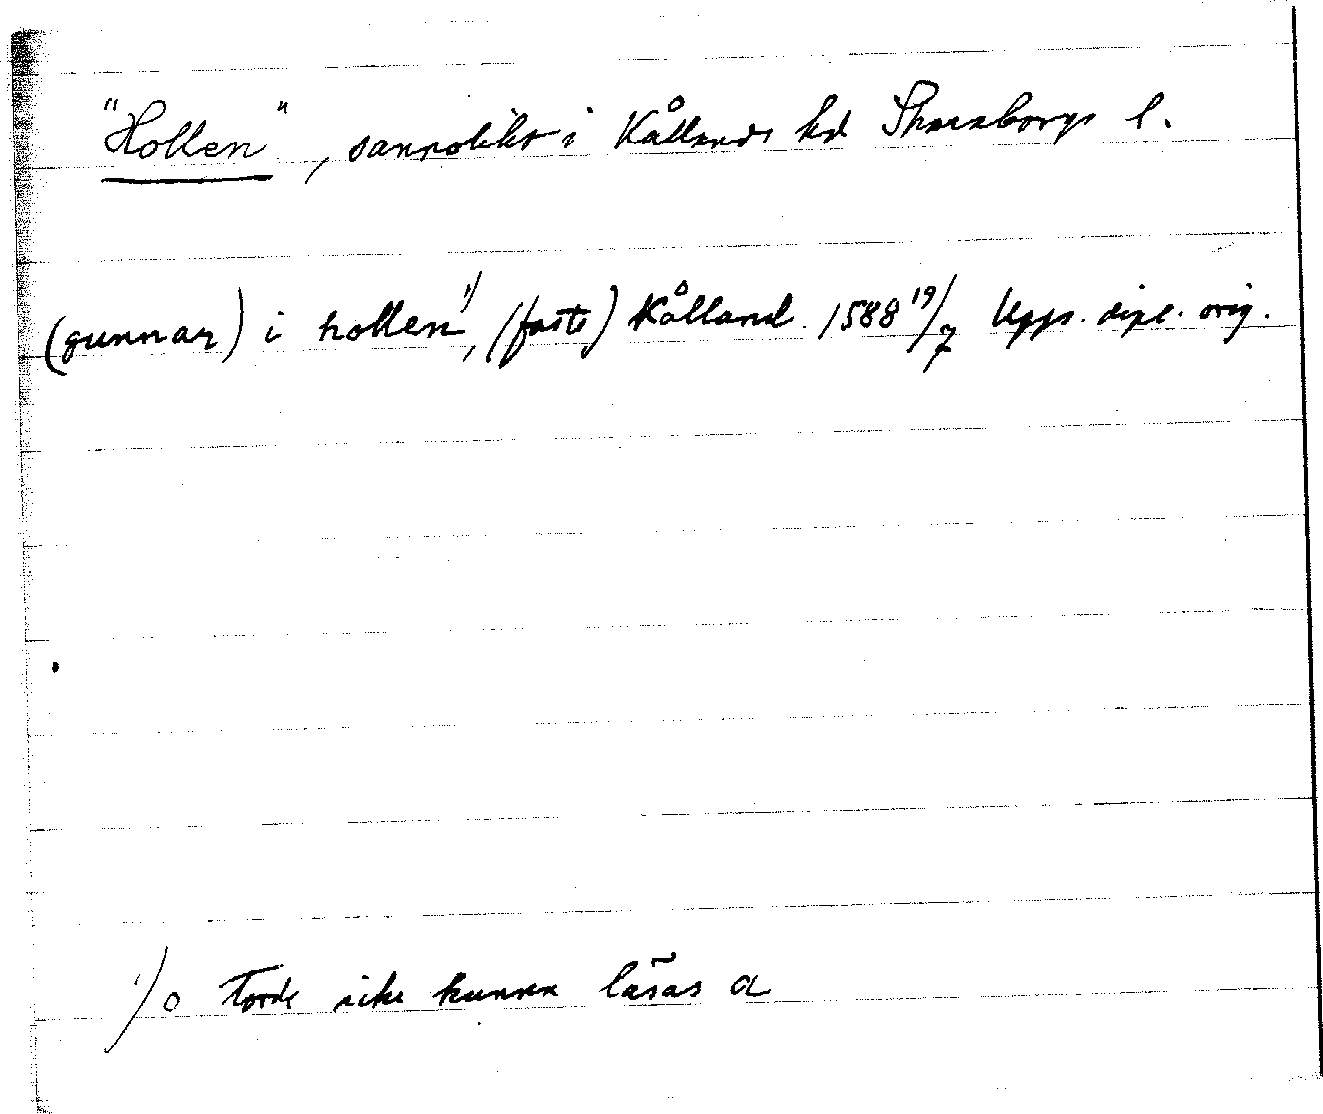 "Hollen", sannolikt i Kållands hd Skaraborgs l.
(gunnar) i hollen 1), (faste) Kålland 1588 19/7 Upps. dipl. orig.
1) o torde icke kunna läsas a